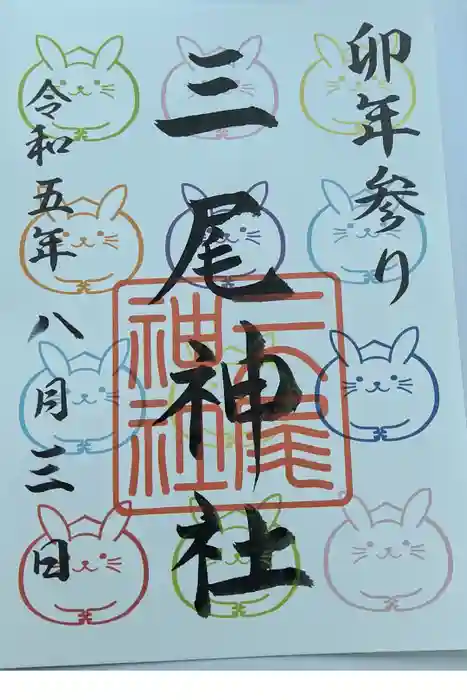 卯年参り
三尾神社
三尾神社
令和五年八月三日